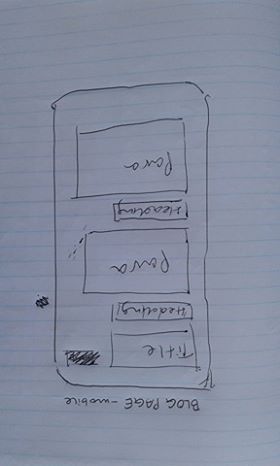 BLOG PAGE - mobile
Title
Heading
Para
Heading
Para